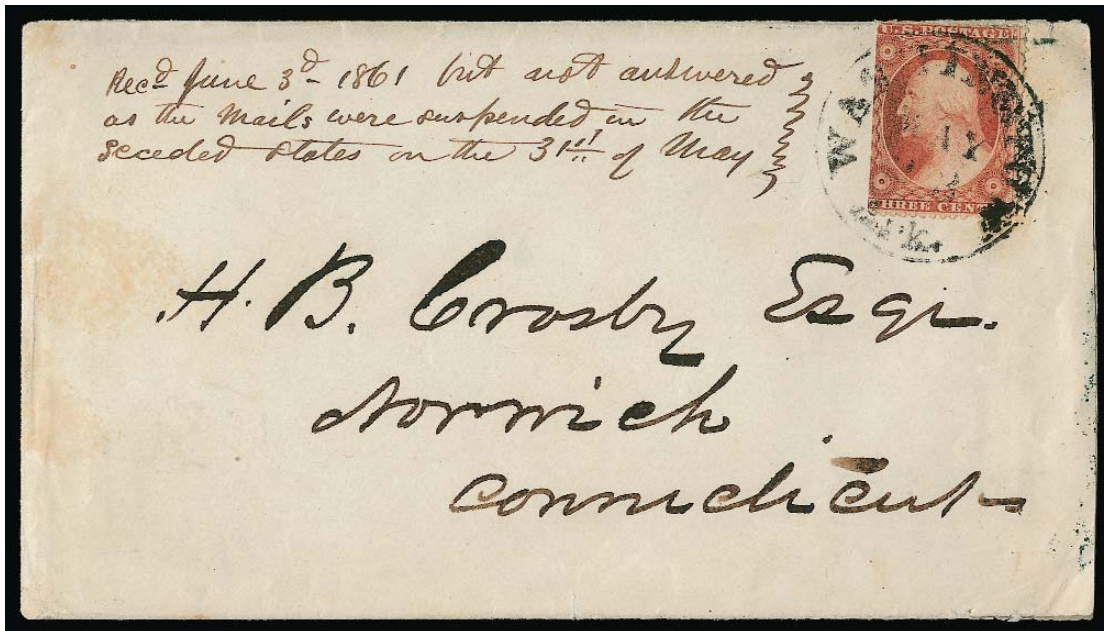 Recd June 3d - 1861 but not answered
as the Mails were suspended in the
Seceded States on the 31st of May
U.S. POSTAGE
THREE CENTS
WASHINGTON
ARK.
H. B. Crosby Esqr.
Norwich
Connichicut